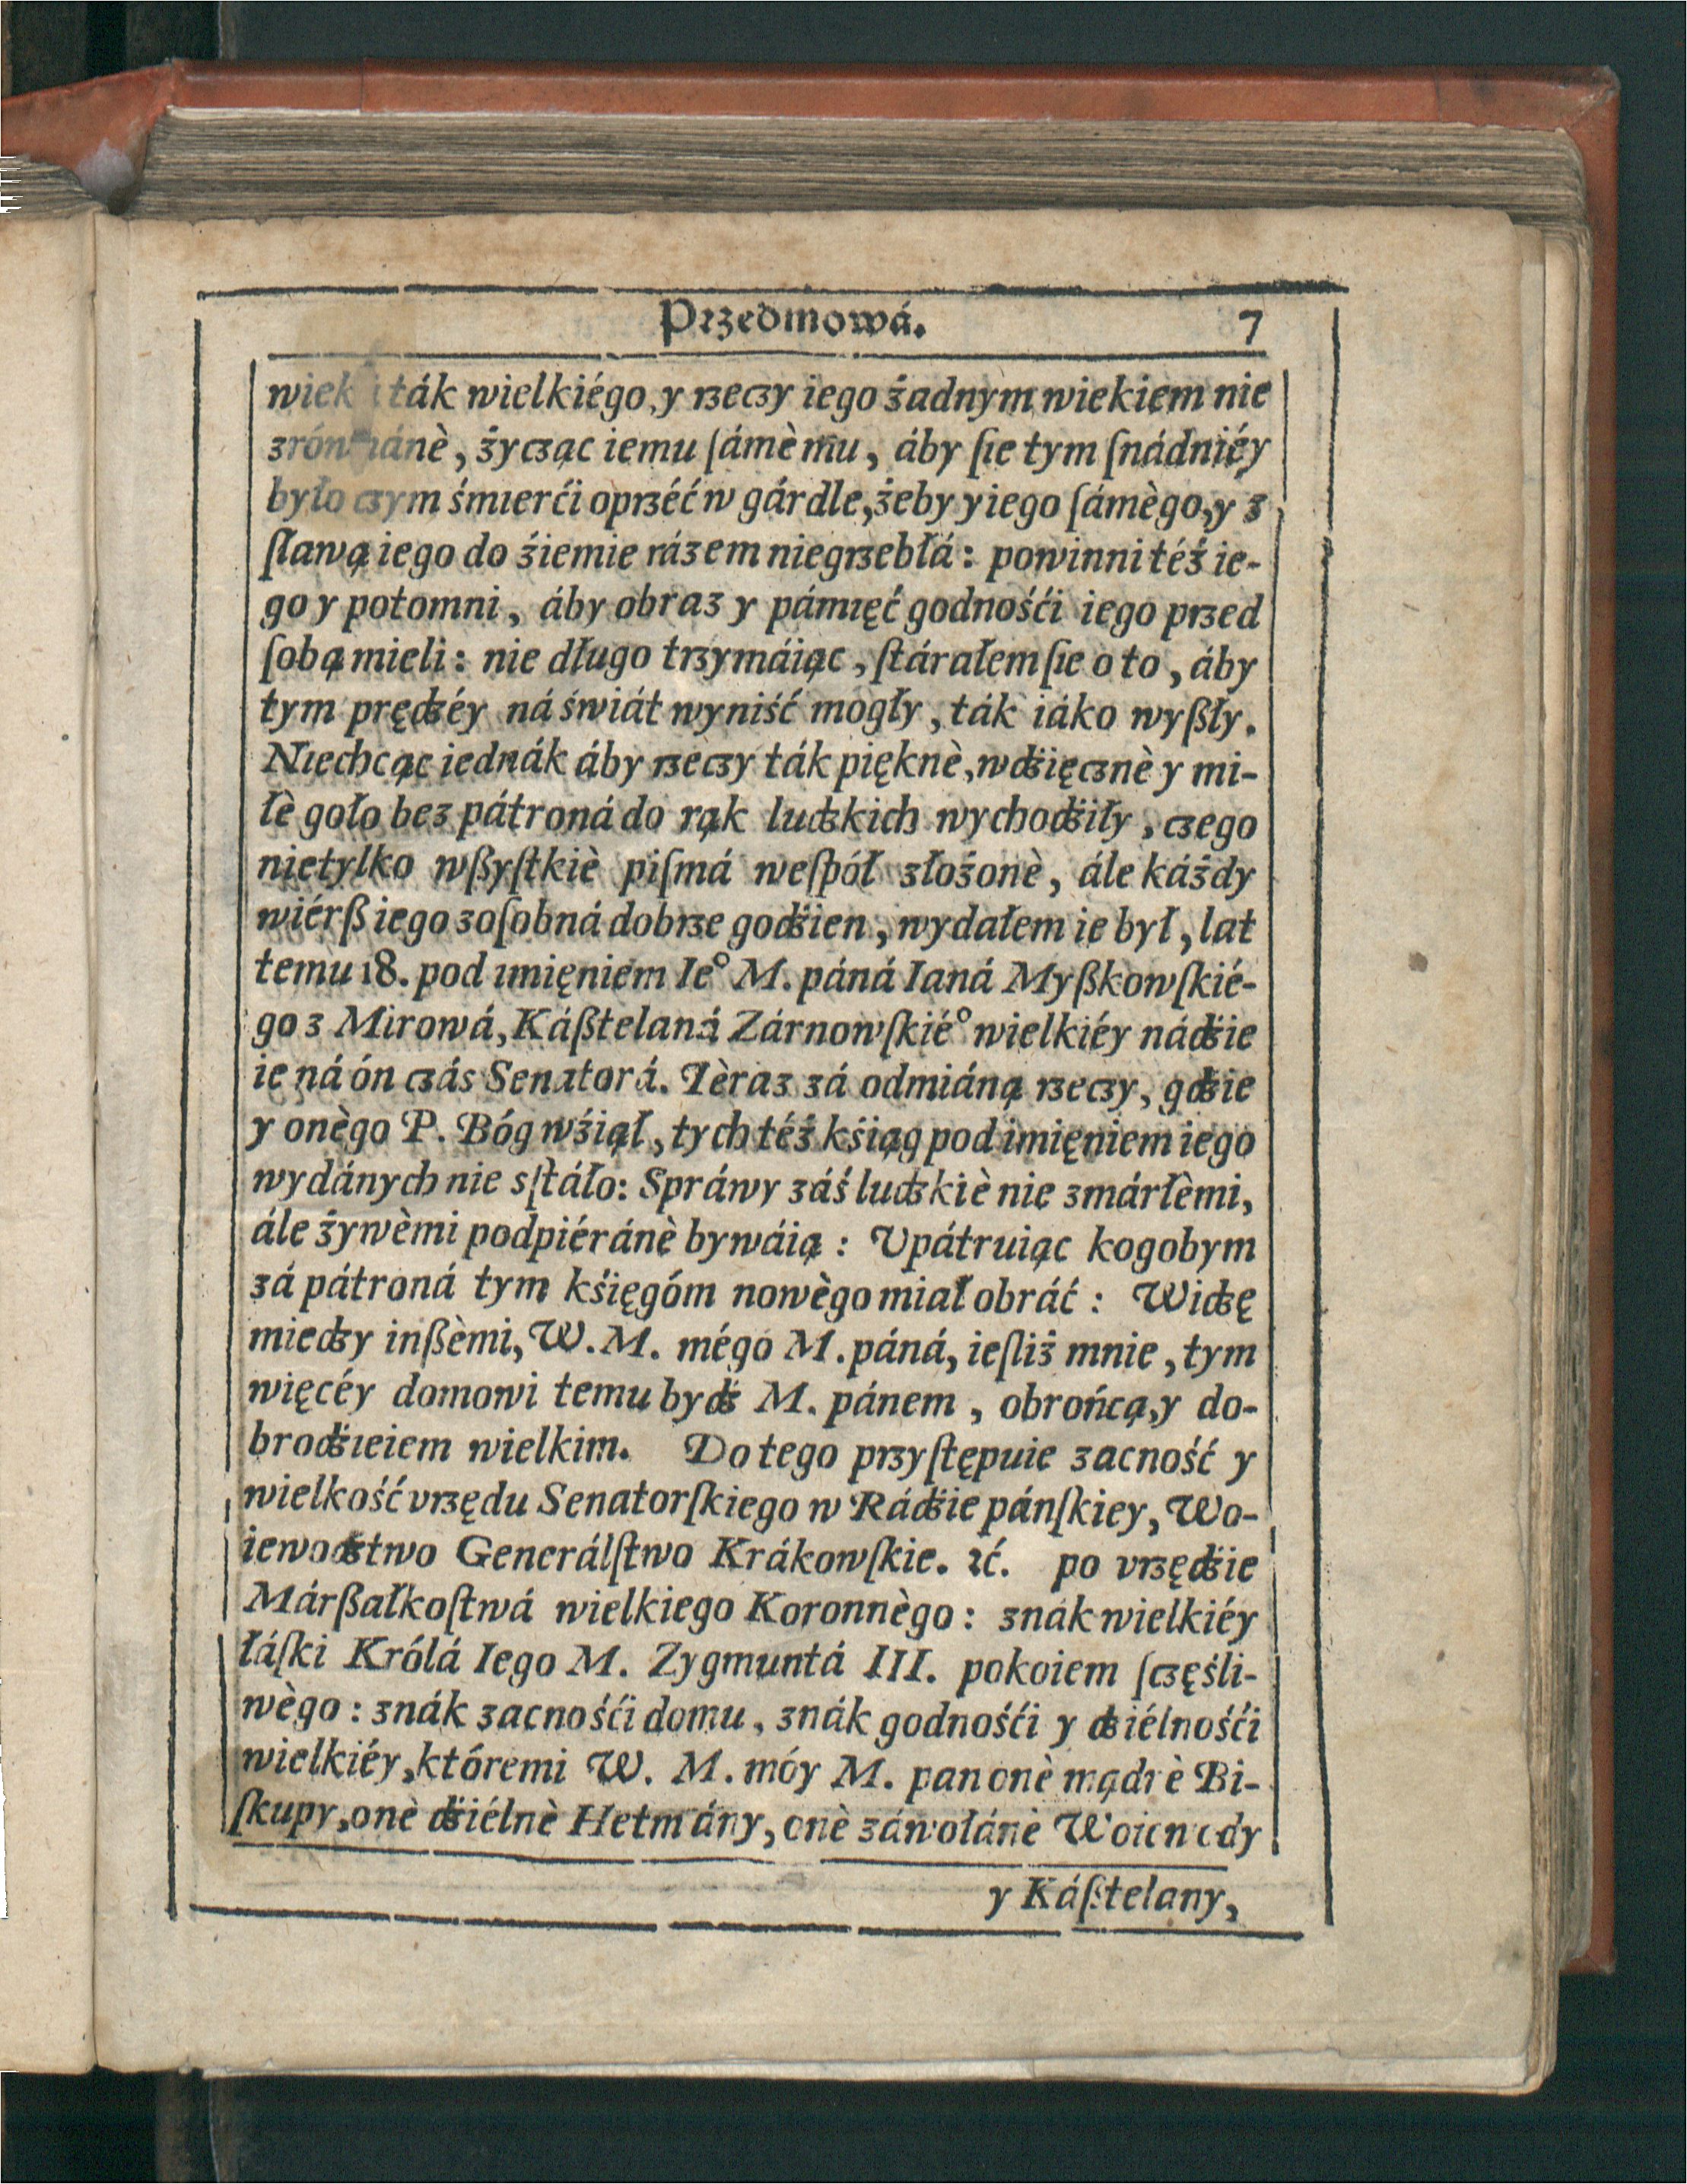 Przedmowá. 7
ták wielkiégo, y rzeczy iego żadnym wiekiem nie
życząc iemu ſámèmu, áby ſie tym ſnádniéy
było czym śmierći oprzéć w gárdle, żeby y iego ſámègo, y z
ſławą iego do źiemie rázem niegrzebłá: powinni téż ie-
go y potomni, áby obraz y pámięć godnośći iego przed
ſobą mieli: nie długo trzymáiąc, ſtárałem ſie o to, áby
tym prędzéy ná świát wyniść mogły, ták iáko wyßły.
Niechcąc iednák áby rzeczy ták pięknè, wdźięcznè y mi-
łè goło bez pátroná do rąk ludzkich wychodźiły, czego
nietylko wßyſtkiè piſmá weſpół złożonè, ále káżdy
wiérß iego zoſobná dobrze godźien, wydałem ie był, lat
temu 18. pod imięniem Ie° M. páná Ianá Myßkowſkié-
go z Mirowá, Káßtelaná Zárnowſkié° wielkiéy nádźie
ie ná ón czás Senatorá. Tèraz zá odmiáną rzeczy, gdźie
y onègo P. Bóg wźiął, tych téż kśiąg pod imięniem iego
wydánych nie sſtáło: Spráwy záś ludzkiè nie zmárłèmi,
ále żywèmi podpiéránè bywáią: Vpátruiąc kogobym
zá pátroná tym kśięgóm nowègo miał obráć: Widzę
miedzy inßèmi, W. M. mégo M. páná, ieſliż mnie, tym
więcéy domowi temu bydź M. pánem, obrońcą, y do-
brodźieiem wielkim. Do tego przyſtępuie zacność y
wielkość vrzędu Senatorſkiego w Rádźie pánſkiey, Wo-
iewodztwo Generálſtwo Krákowſkie. ꝛć. po vrzędźie
Márßałkoſtwá wielkiego Koronnègo: znák wielkiéy
łáſki Królá Iego M. Zygmuntá III. pokoiem ſczęśli-
wègo: znák zacnośći domu, znák godnośći y dźiélnośći
wielkiéy, któremi W. M. móy M. pan onè mądrè Bi-
ſkupy, onè dźiélnè Hetmány, onè záwołánè Woiewody
y Káßtelany,